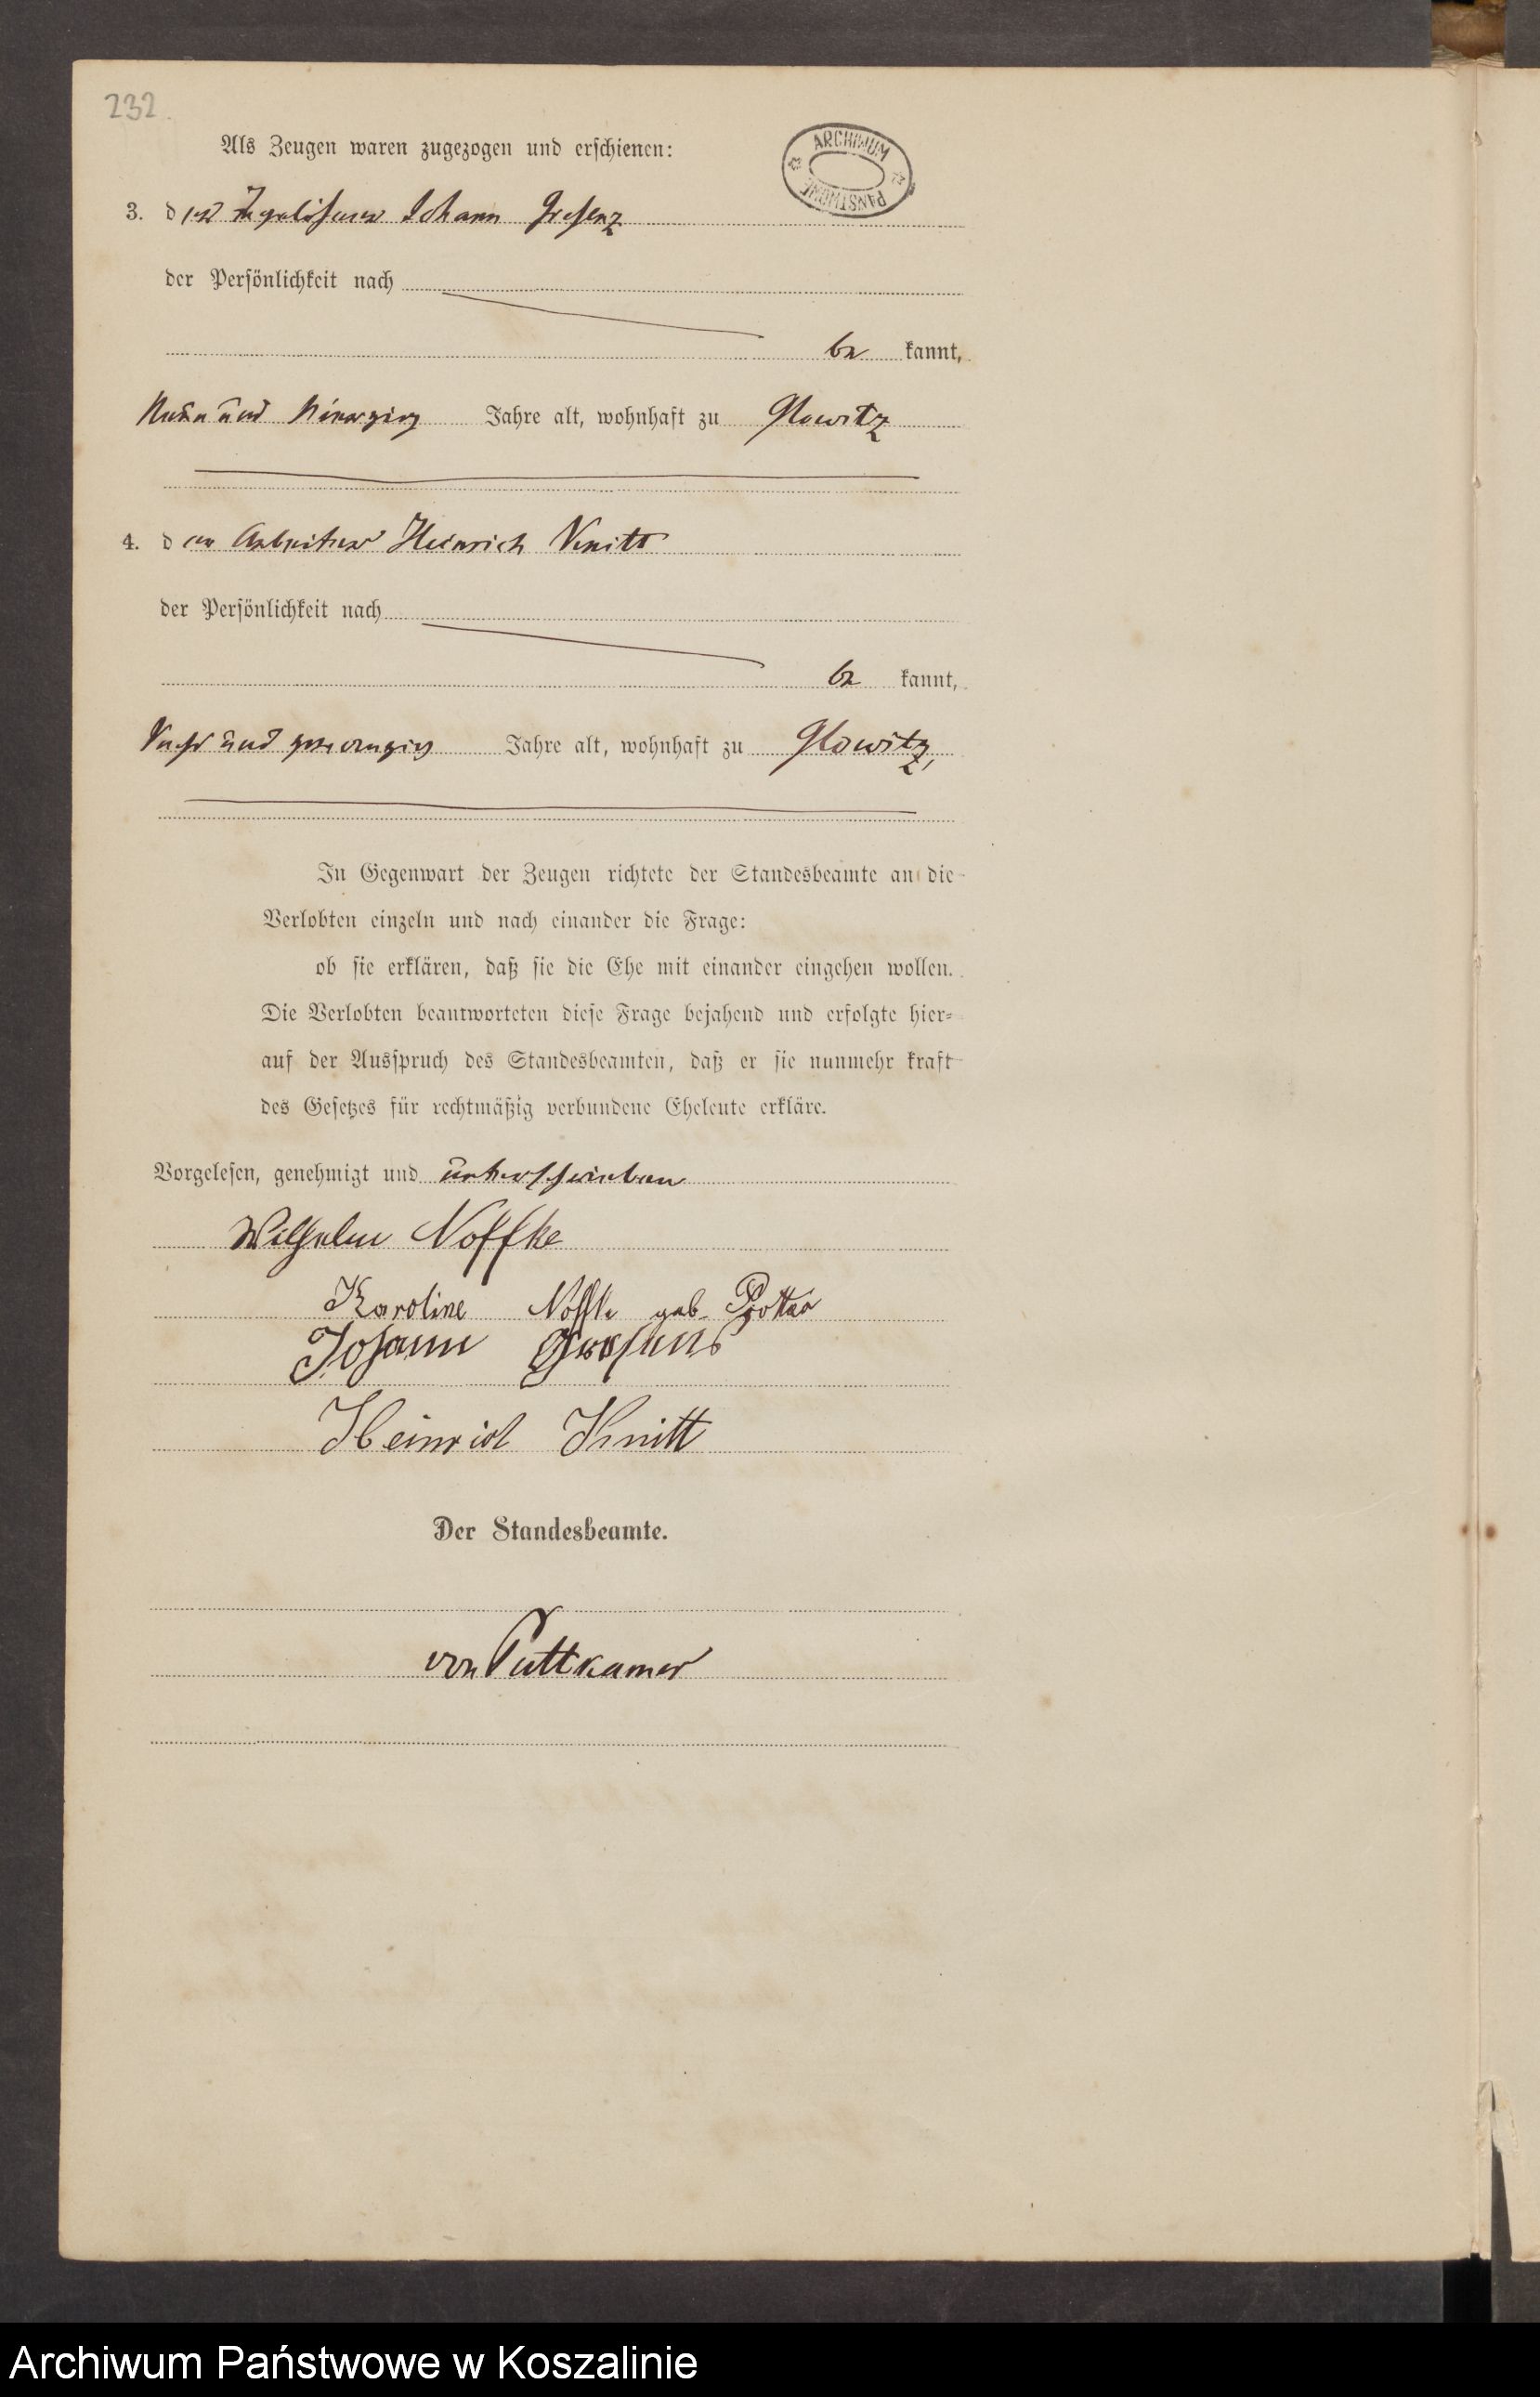 232.
Als Zeugen waren zugezogen und erschienen:
ARCHIWUM PAŃSTWOWE
3. der Johann
der Persönlichkeit nach
be kannt,
Neun und vierzig Jahre alt, wohnhaft zu Glowitz
4. der Arbeiter Heinrich Knitt
der Persönlichkeit nach
be kannt,
Sechs und zwanzig Jahre alt, wohnhaft zu Glowitz,
In Gegenwart der Zeugen richtete der Standesbeamte an die
Verlobten einzeln und nach einander die Frage:
ob sie erklären, daß sie die Ehe mit einander eingehen wollen.
Die Verlobten beantworteten diese Frage bejahend und erfolgte hier-
auf der Ausspruch des Standesbeamten, daß er sie nunmehr kraft
des Gesetzes für rechtmäßig verbundene Eheleute erkläre.
Vorgelesen, genehmigt und unterschrieben
Wilhelm Noffke
Karoline Noffke geb.
Johann
Heinrich Knitt
Der Standesbeamte.
von Puttkamer
Archiwum Państwowe w Koszalinie